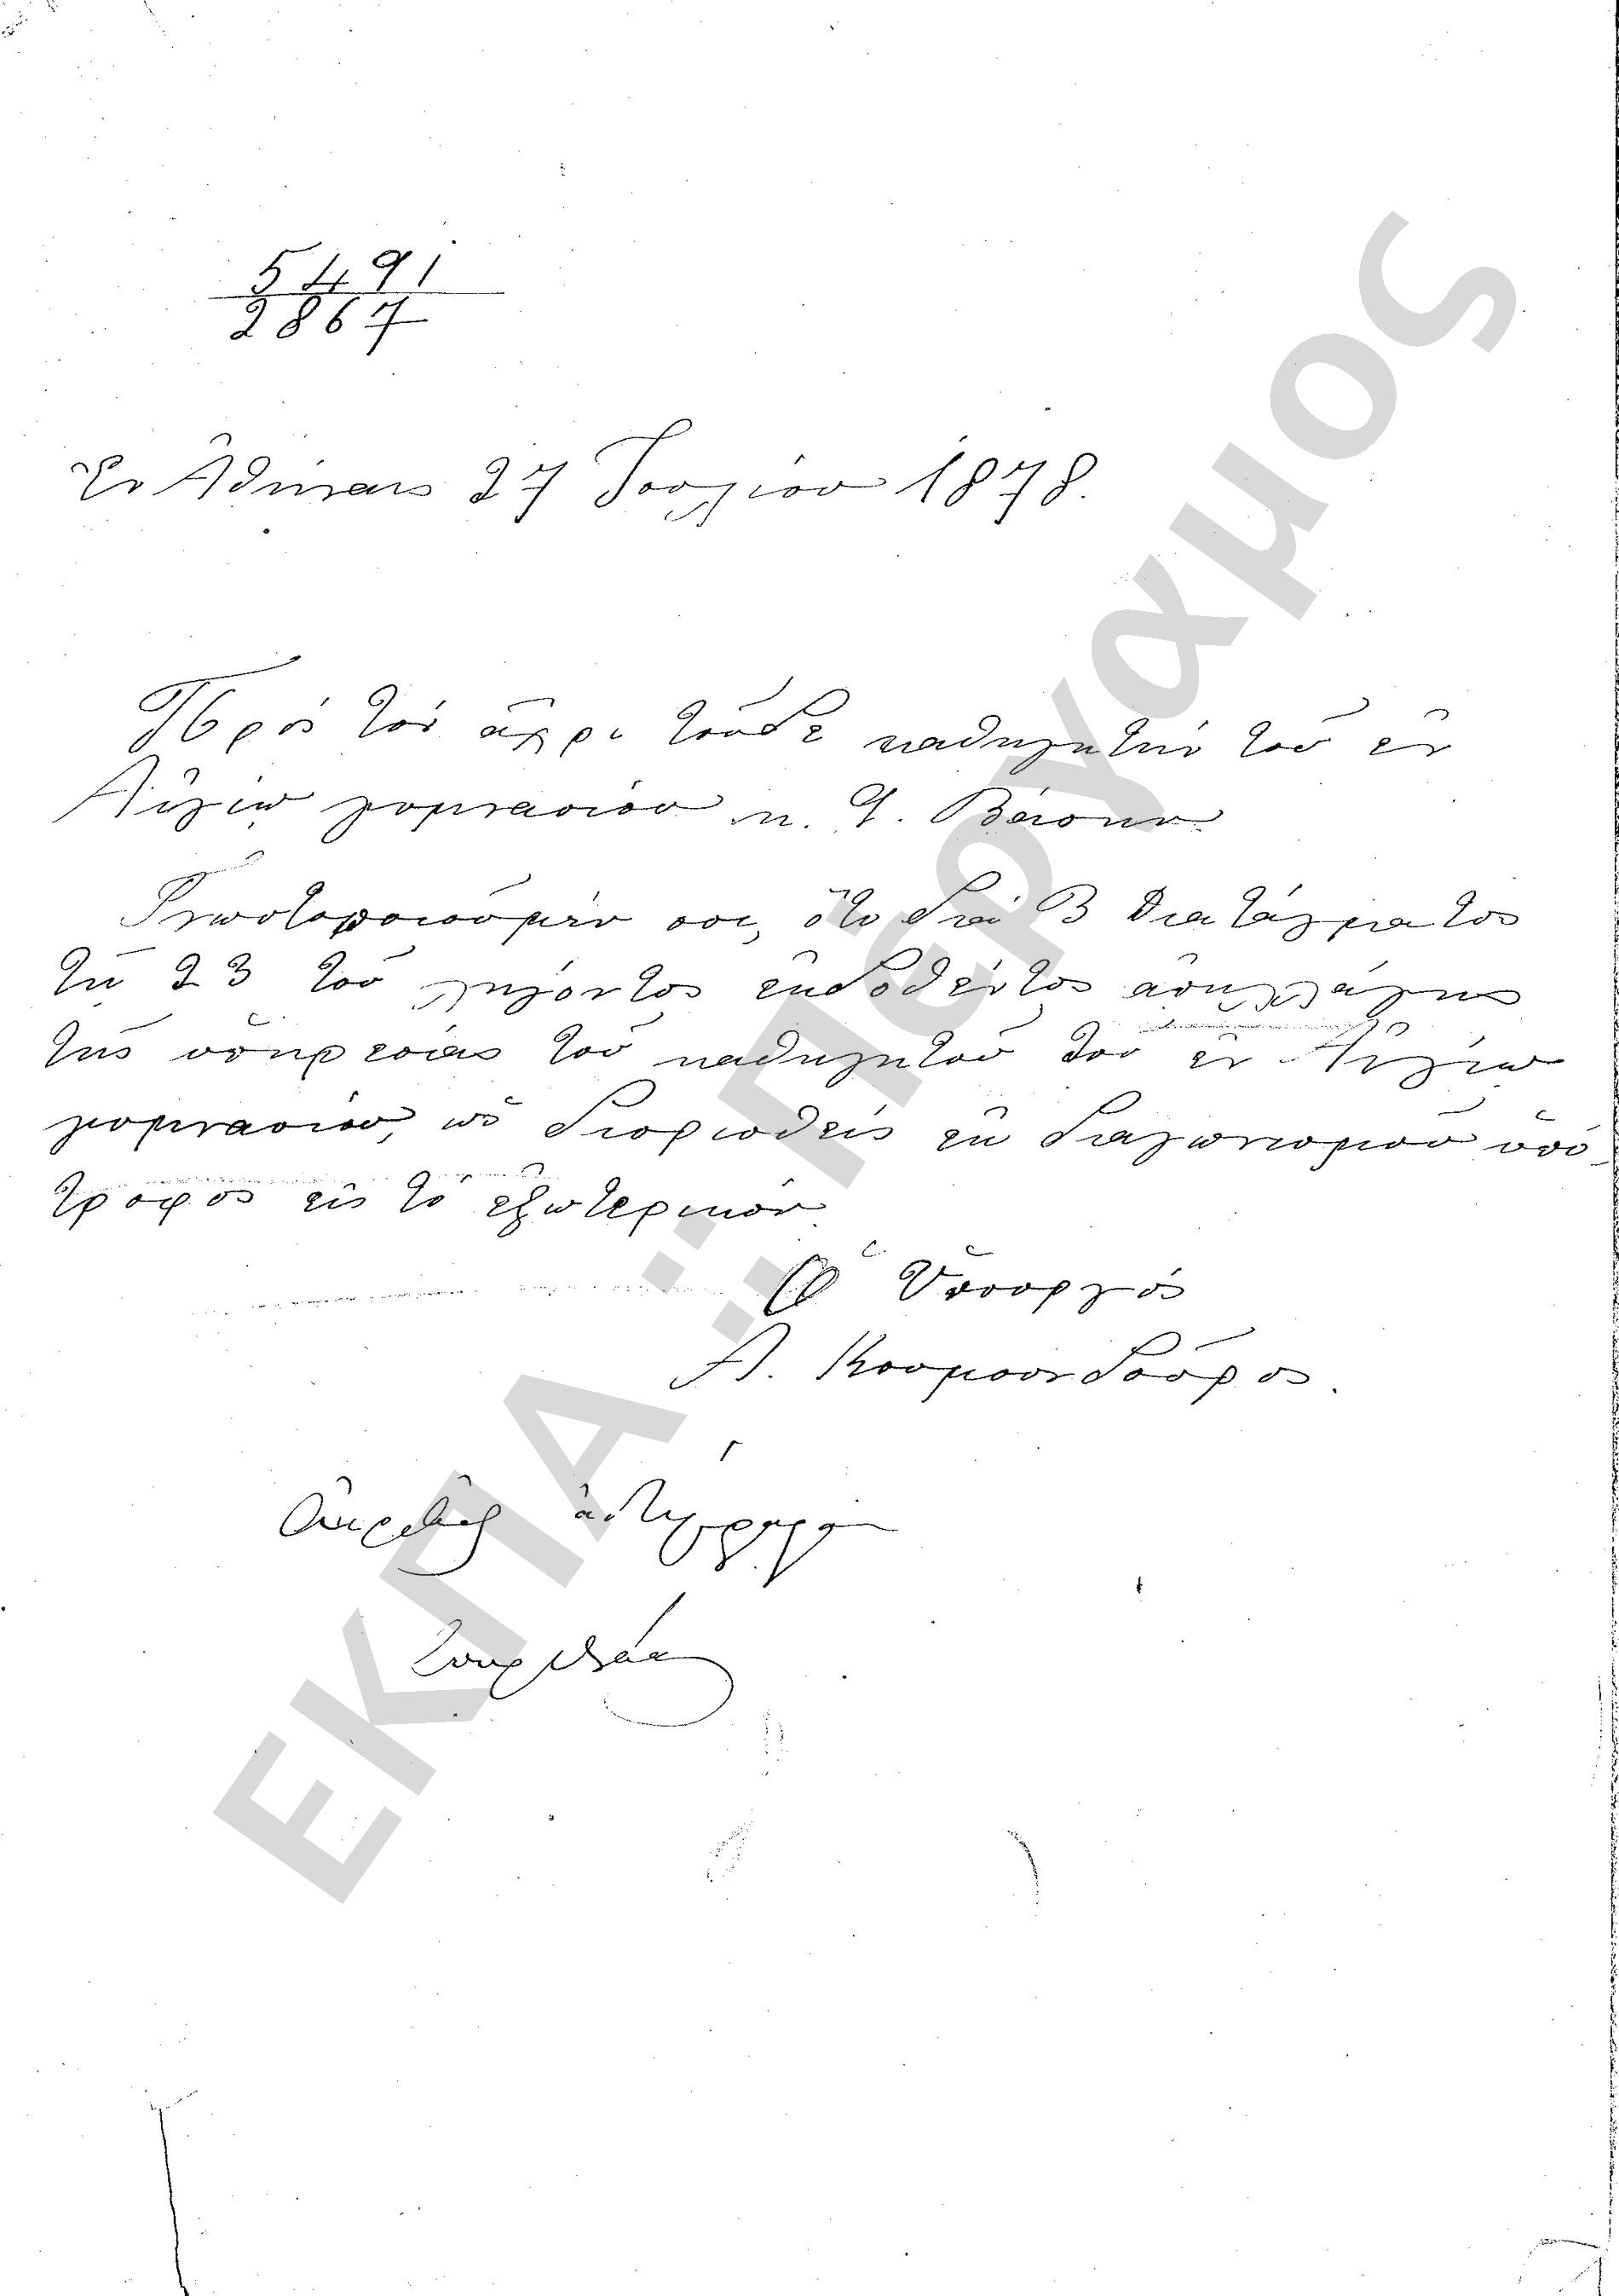 5491
2867
Ἐν Ἀθήναις 27 Ἰουλίου 1878.
Πρὸς τὸν ἄχρι τοῦδε καθηγητὴν τοῦ ἐν
Αἰγίῳ γυμνασίου κ. Ι. Βάσην
Γνωστοποιοῦμέν σοι, ὅτι διὰ Β Διατάγματος
τῇ 23 τοῦ λήγοντος ἐκδοθέντος ἀπηλλάγης
τῆς ὑπηρεσίας τοῦ καθηγητοῦ τοῦ ἐν Αἰγίῳ
γυμνασίου, ὡς διορισθεὶς ἐκ διαγωνισμοῦ ὑπό
τροφος εἰς τὸ ἐξωτερικόν
Ὁ Ὑπουργὸς
Α. Κουμουνδοῦρος.
Ἀκριβὲς ἀντίγραφον
ΕΚΠΑ :: Πέργαμος